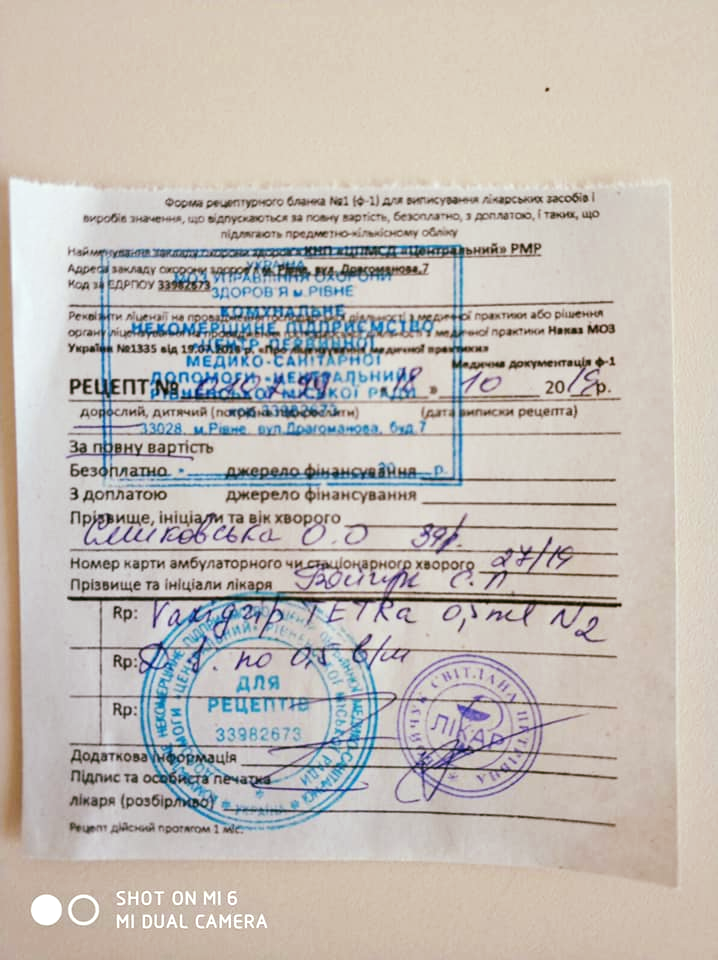 Форма рецептурного бланка №1 (ф-1) для виписування лікарських засобів і
виробів значення, що відпускаються за повну вартість, безоплатно, з доплатою, і таких, що
підлягають предметно-кількісному обліку
Найменування закладу охорони здоров'я КНП «ЦПМСД «Центральний» РМР
Адреса закладу охорони здоров'я м. Рівне, вул. Драгоманова,7
Код за ЄДРПОУ 33982673
УКРАЇНА
МОЗ УПРАВЛІННЯ ОХОРОНИ
ЗДОРОВ'Я м.РІВНЕ
КОМУНАЛЬНЕ
НЕКОМЕРЦІЙНЕ ПІДПРИЄМСТВО
«ЦЕНТР ПЕРВИННОЇ
МЕДИКО-САНІТАРНОЇ
ДОПОМОГИ «ЦЕНТРАЛЬНИЙ»
РІВНЕНСЬКОЇ МІСЬКОЇ РАДИ
код 33982673
33028, м.Рівне, вул.Драгоманова, буд.7
Реквізити ліцензії на провадження господарської діяльності з медичної практики або рішення
органу ліцензування на провадження діяльності з медичної практики Наказ МОЗ
України №1335 від 19.07.2018 р. «Про ліцензування медичної практики»
Медична документація ф-1
РЕЦЕПТ № «18» 10 2019р.
дорослий, дитячий (потрібне підкреслити) (дата виписки рецепта)
За повну вартість
Безоплатно джерело фінансування
З доплатою джерело фінансування
Прізвище, ініціали та вік хворого
О.О 39р.
Номер карти амбулаторного чи стаціонарного хворого 27/19
Прізвище та ініціали лікаря Бойчук С.П.
Rp: Ваксигріп ТЕТRa 0,5 ml N2
Rp: D.S. по 0,5 в/м
Rp:
ДЛЯ
РЕЦЕПТІВ
33982673
УКРАЇНА
БОЙЧУК СВІТЛАНА ПЕТРІВНА
ЛІКАР
Додаткова інформація
Підпис та особиста печатка
лікаря (розбірливо)
Рецепт дійсний протягом 1 міс.
SHOT ON MI 6
MI DUAL CAMERA